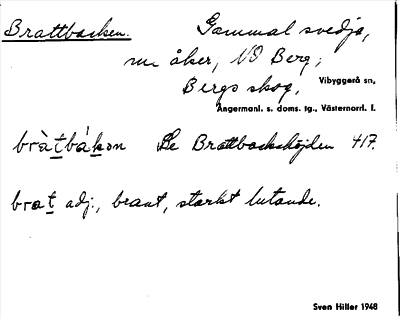 Brattbacken. Gammal svedja,
nu åker, NO Berg,
Bergs skog, Vibyggerå sn,
Ångermanl. s. doms. tg., Västernorrl. l.
bràtbákən Se Brattbackshöjden 417.
brat adj., brant, starkt lutande.
Sven Hiller 1948